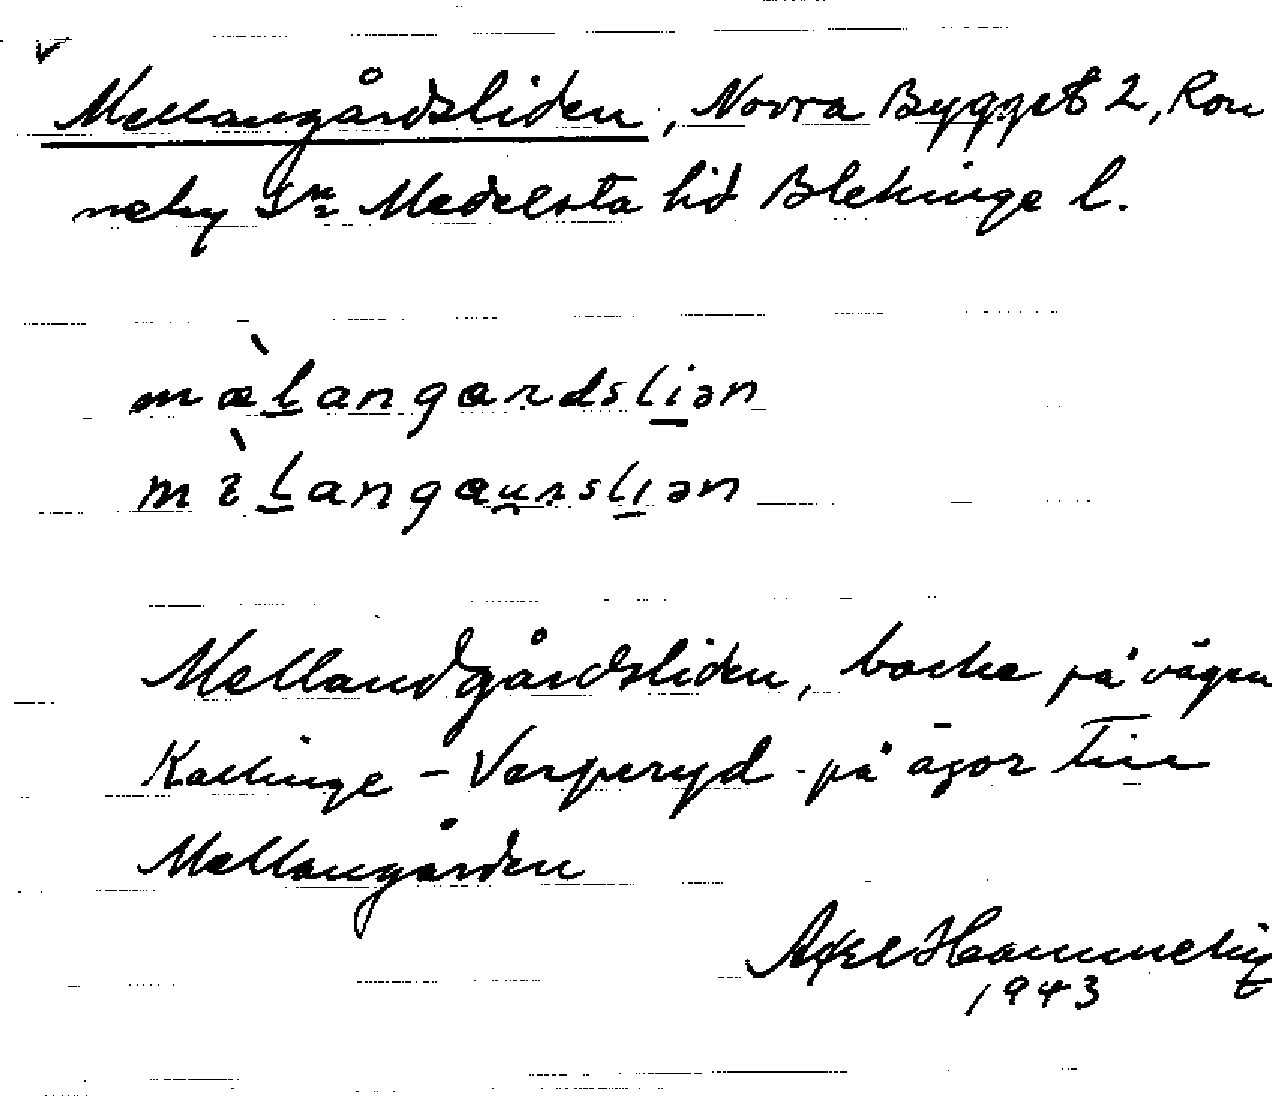 Mellangårdsliden, Norra Bygget 2, Ron
neby Sn Medelsta hd Blekinge l.
mæ̀langardsliən
langaurs liən
Mellandgårdsliden, backe på vägen
Kallinge - Varperyd på ägor till
Mellangården
Axel Hammeby
1943